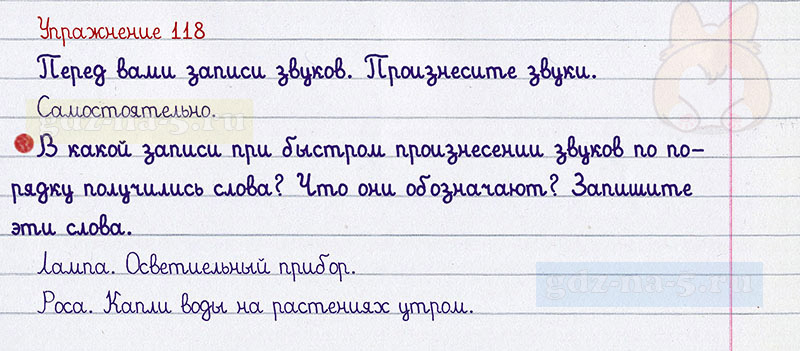 Упражнение 118
Перед вами записи звуков. Произнесите звуки.
Самостоятельно.
gdz-na-5.ru
В какой записи при быстром произнесении звуков по по-
рядку получились слова? Что они обозначают? Запишите
эти слова.
Лампа. Осветиельный прибор.
gdz-na-5.ru
Роса. Капли воды на растениях утром.